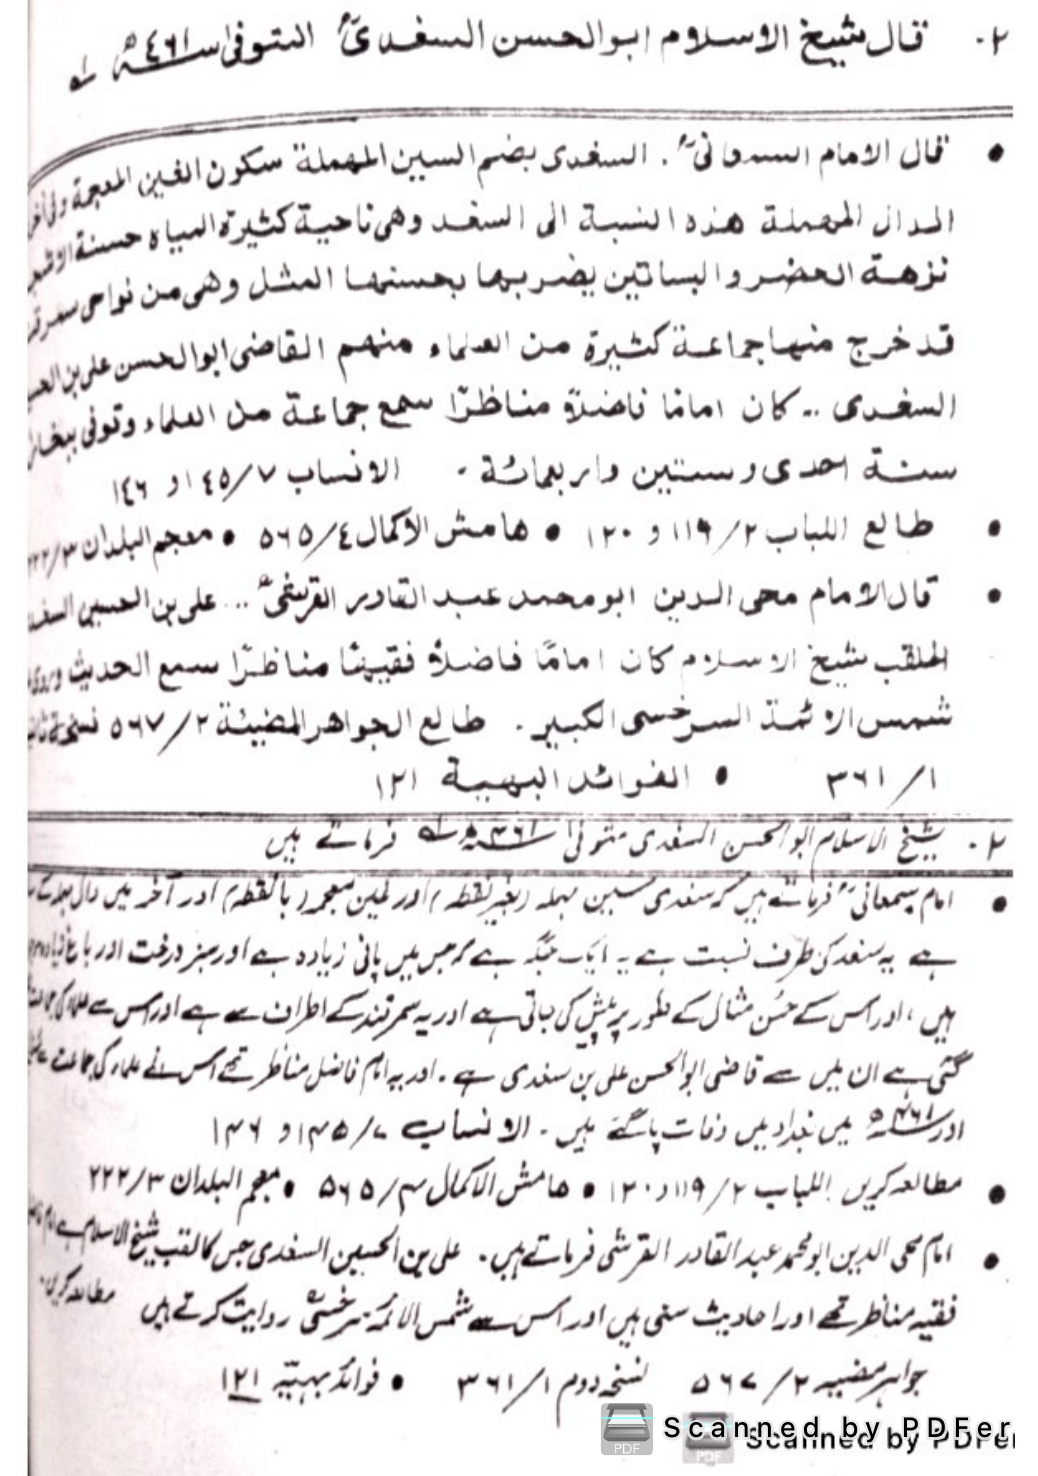 ٢۔ قال شیخ الاسلام ابوالحسن السغدیؒ المتوفی سنہ ٤٦١ھ
• قال الامام السمعانیؒ ۔ السغدی بضم السین المهملة سکون الغین المعجمة وفی
الدال المهملة هذه النسبة الی السغد وهی ناحیة کثیرة المیاه حسنة
نزهة الحضر والبساتین یضرب بها بحسنها المثل وهی من نواحی
قد خرج منها جماعة کثیرة من العلماء منهم القاضی ابوالحسن علی بن
السغدی .. کان امامًا فاضلاً مناظرًا سمع جماعة من العلماء وتوفی
سنة احدی وستین واربعمائة ۔ الانساب ١٤٥/٧ و ١٤٦
• طالع اللباب ١١٩/٢ و ١٢٠ • هامش الاکمال ٥٦٥/٤ • معجم البلدان ٢٢٢/٣
• قال الامام محی الدین ابو محمد عبد القادر القرشیؒ .. علی بن الحسین
الملقب شیخ الاسلام کان امامًا فاضلاً فقیهًا مناظرًا سمع الحدیث
شمس الائمة السرخسی الکبیر ۔ طالع الجواهر المضیئة ٥٦٧/٢ نسخة
٣٦١/١ • الفوائد البهیة ١٢١
٢۔ شیخ الاسلام ابوالحسن السغدی متوفی فرماتے ہیں
• امام سمعانیؒ فرماتے ہیں کہ سغدی سین مہملہ (بغیر نقطہ) اور غین معجمہ (بالنقطہ) اور آخر میں دال
ہے یہ سغد کی طرف نسبت ہے یہ ایک جگہ ہے کہ جس میں پانی زیادہ ہے اور سبز درخت اور باغ
ہیں، اور اس کے حُسن مثال کے طور پر پیش کی جاتی ہے اور یہ سمرقند کے اطراف سے ہے اور اس سے
گئی ہے ان میں سے قاضی ابوالحسن علی بن سغدی ہے ۔ اور یہ امام فاضل مناظر تھے اس نے علماء کی جماعت
اور ۴۶۱ھ میں بغداد میں وفات پا گئے ہیں ۔ الانساب ۱۴۵/۷ و ۱۴۶
• مطالعہ کریں اللباب ۱۱۹/۲ و ۱۲۰ • هامش الاکمال ۵۶۵/۴ • معجم البلدان ۲۲۲/۳
• امام محی الدین ابو محمد عبد القادر القرشی فرماتے ہیں ۔ علی بن الحسین السغدی جس کا لقب شیخ الاسلام ہے
فقیہ مناظر تھے اور احادیث سنی ہیں اور اس سے شمس الائمہ سرخسیؒ روایت کرتے ہیں مطالعہ کریں
جواہر مضیہ ۵۶۷/۲ نسخہ دوم ۳۶۱/۱ • فوائد بہیّہ ۱۲۱
Scanned by PDFer
Scanned by PDFer
PDF
PDF